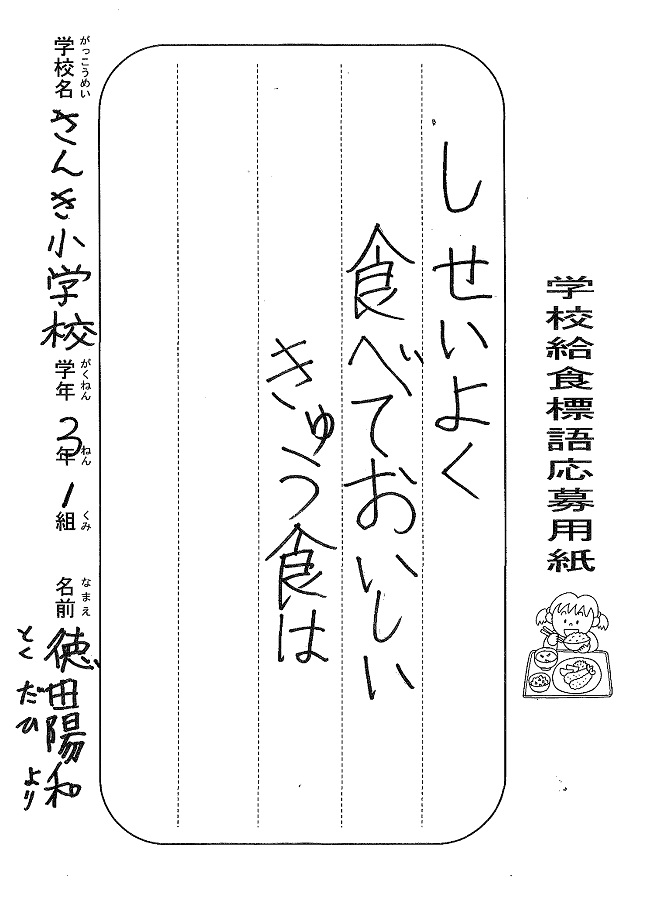 学校給食標語応募用紙
しせいよく
食べておいしい
きゅう食は
がっこうめい
学校名 さんき小学校
がくねん
学年 3年 1組
ねん
くみ
なまえ
名前 徳田陽和
とくだひより